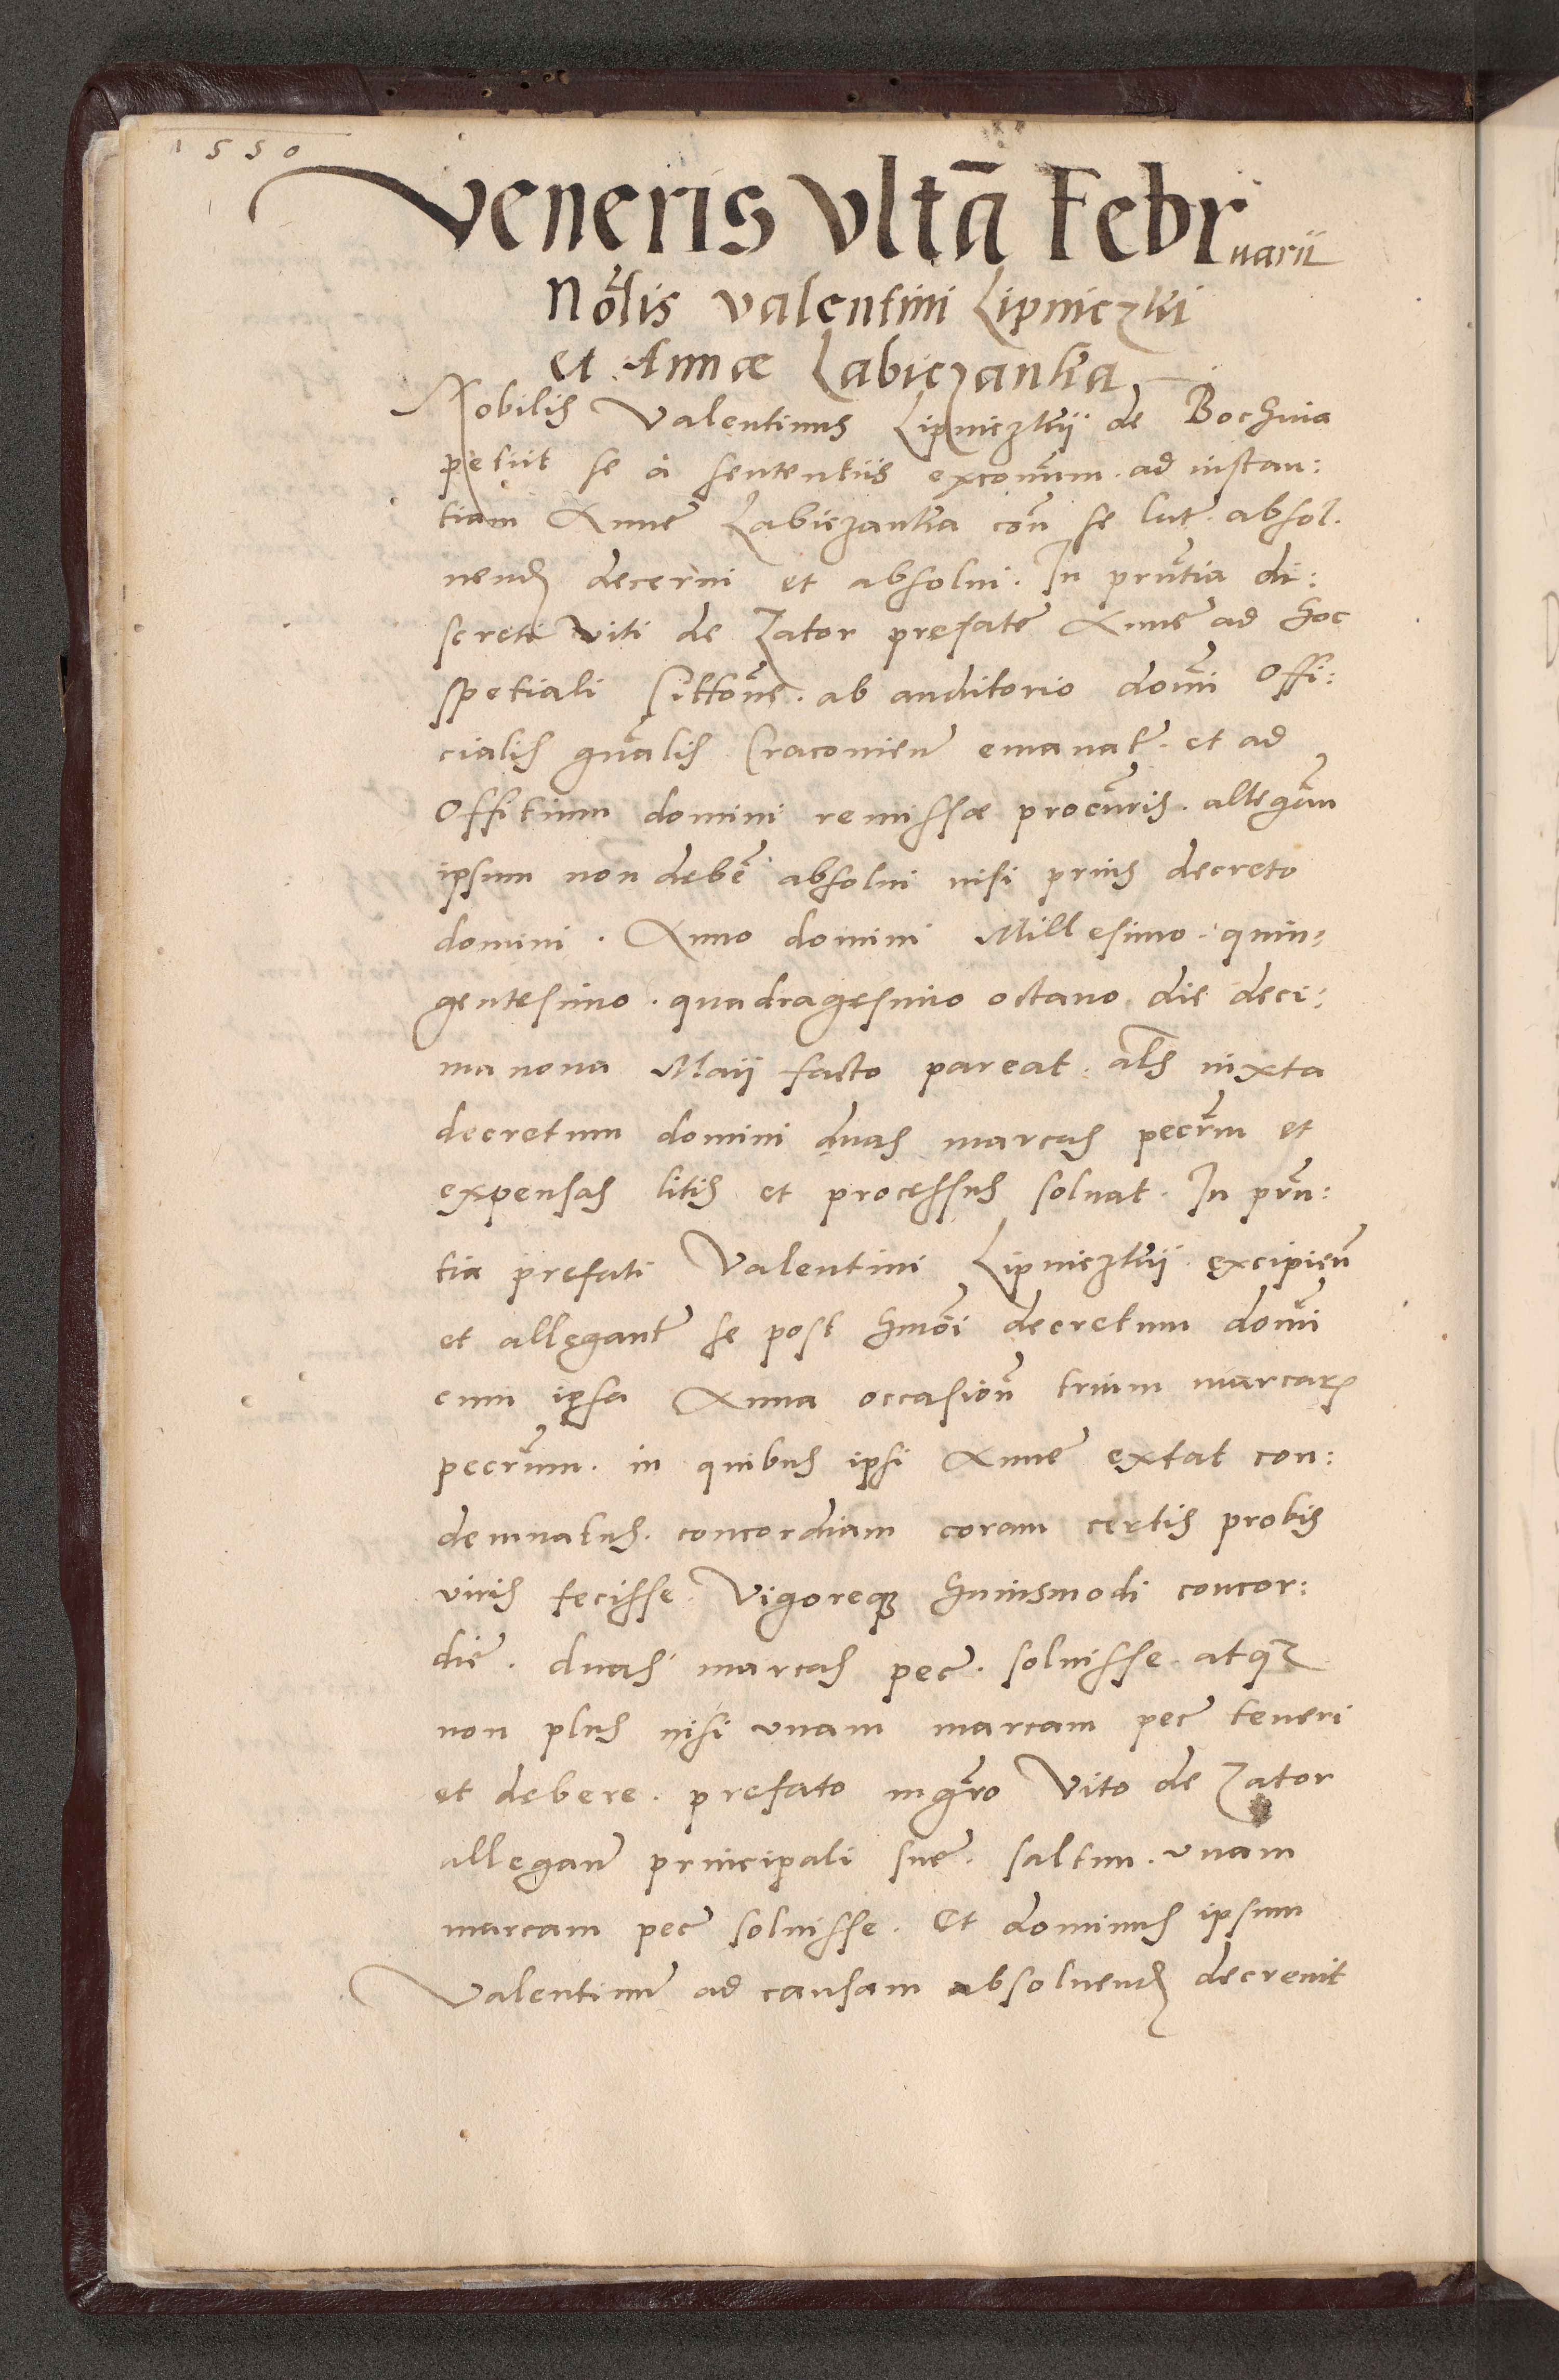 1550
Veneris Vltā Februarii
Nōlis Valentini Lipniczkii
et Annæ Labiczanka
Nobilis Valentinus Lipniczkii de Bochnia
petiit se à sententiis excomun. ad instan:
tiam Anne Labiczanka con se lat. absol.
uend decerni et absolui. In prntia di:
screti Viti de Zator prefate Anne ad hoc
spetiali. ab auditorio domi Offi:
cialis gnalis Cracouien emanat. et ad
Offitium domini remissæ procuris. allegan
ipsum non debe absolui nisi prius decreto
domini. Anno domini Millesimo. quin:
gentesimo. quadragesimo octauo. die deci:
ma nona Maii facto pareat. als iuxta
decretum domini duas marcas pecum et
expensas litis et processus soluat. In prn:
tia prefati Valentini Lipniczkii excipien
et allegant se post hmoi decretum domi
cum ipsa Anna occasion trium marcar
pecrum. in quibus ipsi Anne extat con:
demnatus. concordiam coram certis probis
viris fecisse. Vigoreq huiusmodi concor:
die. duas marcas pec. soluisse atq
non plus nisi vnam marcam pec teneri
et debere. prefato mgro Vito de Zator
allegan principali sue. saltim. vnam
marcam pec soluisse. Et dominus ipsum
Valentinu ad causam absoluend decreuit